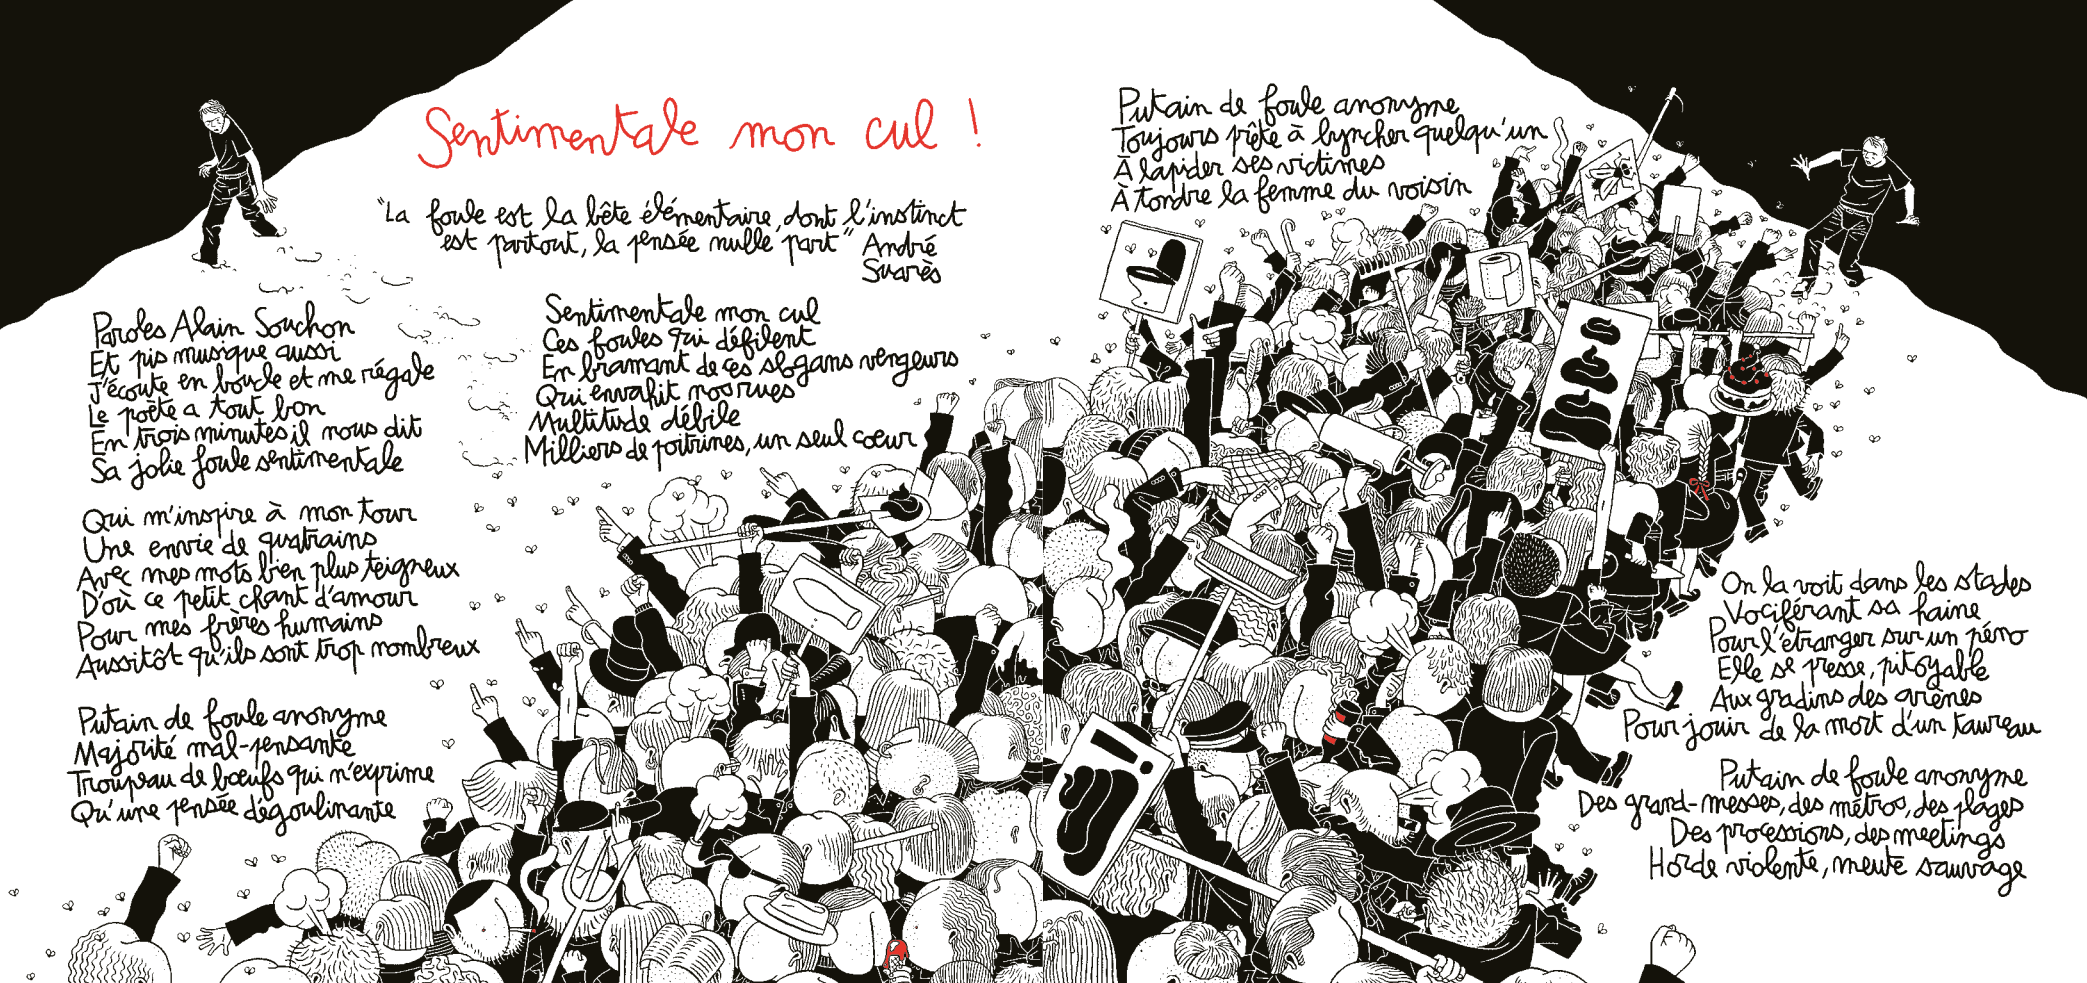 Sentimentale mon cul !
"La foule est la bête élémentaire, dont l'instinct
est partout, la pensée nulle part" André
Suarès
Paroles Alain Souchon
Et pis musique aussi
J'écoute en boucle et me régale
Le poète a tout bon
En trois minutes il nous dit
Sa jolie foule sentimentale
Qui m'inspire à mon tour
Une envie de quatrains
Avec mes mots bien plus teigneux
D'où ce petit chant d'amour
Pour mes frères humains
Aussitôt qu'ils sont trop nombreux
Putain de foule anonyme
Majorité mal-pensante
Troupeau de bœufs qui n'exprime
Qu'une pensée dégoulinante
Sentimentale mon cul
Ces foules qui défilent
En bramant de ces slogans vengeurs
Qui envahit nos rues
Multitude débile
Milliers de poitrines, un seul cœur
Putain de foule anonyme
Toujours prête à lyncher quelqu'un
À lapider ses victimes
À tondre la femme du voisin
On la voit dans les stades
Vociférant sa haine
Pour l'étranger sur un péno
Elle se presse, pitoyable
Aux gradins des arènes
Pour jouir de la mort d'un taureau
Putain de foule anonyme
Des grand-messes, des métros, des plages
Des processions, des meetings
Horde violente, meute sauvage
!